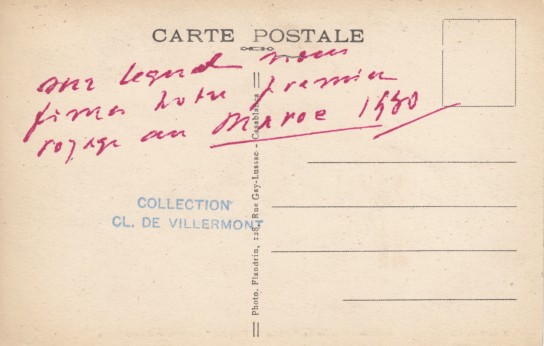 CARTE POSTALE
sur lequel nous
fîmes notre premier
voyage au Maroc 1930
COLLECTION
CL. DE VILLERMONT
Photo. Flandrin, 128, Rue Gay-Lussac - Casablanca